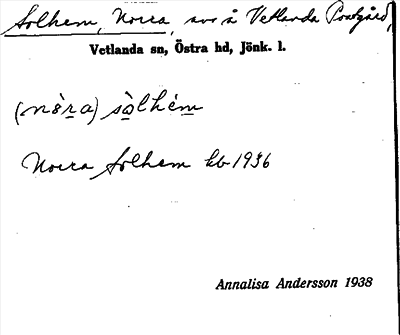 Solhem, Norra, avs å Vetlanda Prostgård,
Vetlanda sn, Östra hd, Jönk. l.
(nòra) sòlhém
Norra Solhem kb 1936
Annalisa Andersson 1938